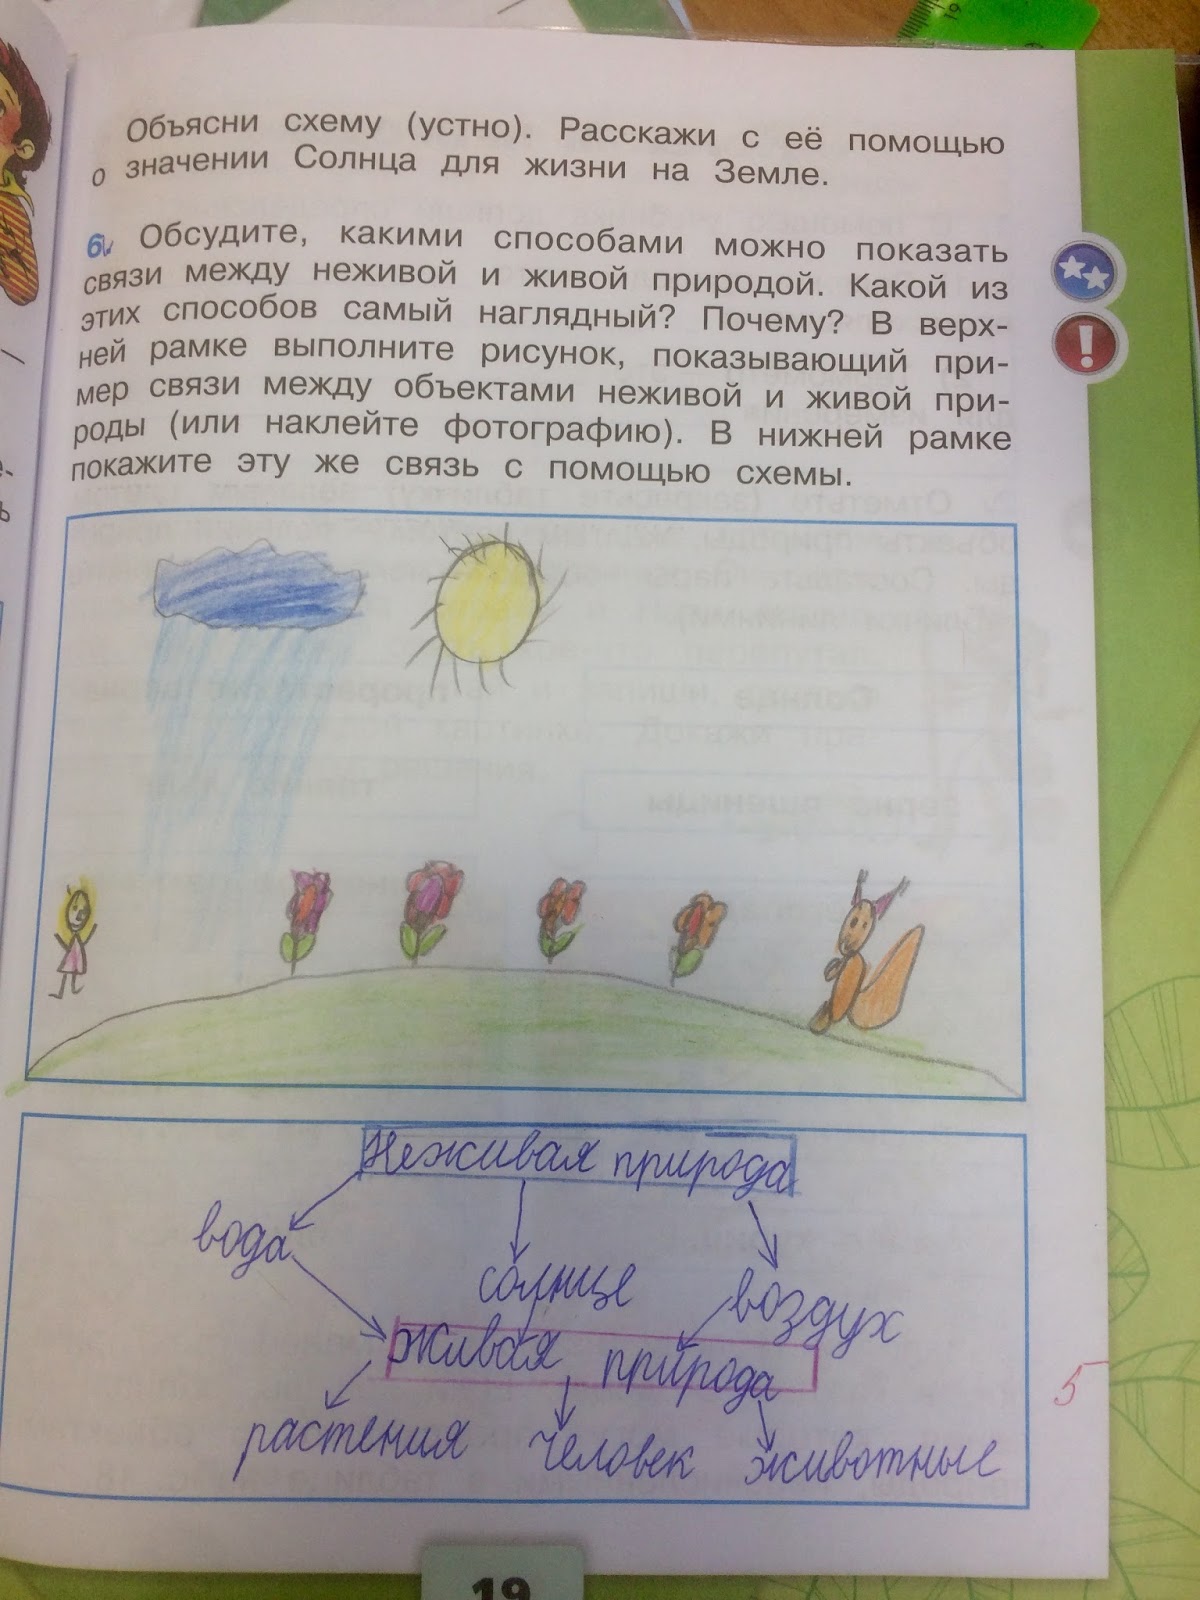 Объясни схему (устно). Расскажи с её помощью
о значении Солнца для жизни на Земле.
6. Обсудите, какими способами можно показать
связи между неживой и живой природой. Какой из
этих способов самый наглядный? Почему? В верх-
ней рамке выполните рисунок, показывающий при-
мер связи между объектами неживой и живой при-
роды (или наклейте фотографию). В нижней рамке
покажите эту же связь с помощью схемы.
Неживая природа
вода
солнце
воздух
живая природа
растения человек животные
5
19